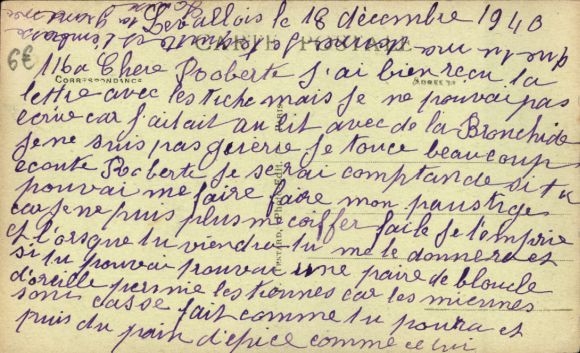 Levallois le 18 décembre 1940
CARTE POSTALE
6€
Ma Chere Roberte j'ai bien reçu ta
CORRESPONDANCE
ADRESSE
lettre avec les tiche mais je ne pouvai pas
ecrire car j'aitait au lit avec de la Bronchide
je ne suis pas guérie je touce beaucoup
ecoute Roberte je serai comptande si tu
pouvai me faire faire mon paustige
car je ne puis plus m coiffer fait le je t'emprie
et l'orsque tu viendra tu me le donnera et
si tu pouvai trouvai une paire de bloucle
d'oreille permie les tiennes car les miennes
sont casse fait comme tu poura et
puis du pain d'epice comme celui